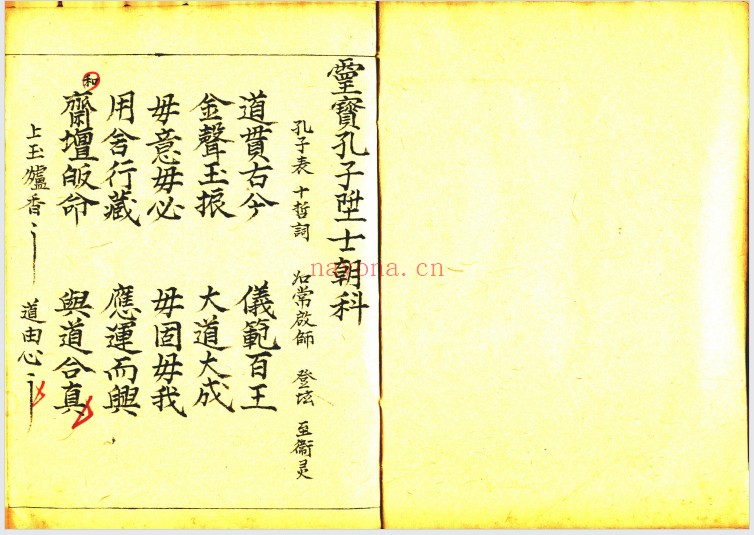 靈寶孔子陞士朝科
孔子表 十哲詞 如常啟師 登壇 至衞灵
道貫古今 儀範百王
金聲玉振 大道大成
毋意毋必 毋固毋我
用舍行藏 應運而興
和
齋壇皈命 與道合真
上玉爐香〻 道由心〻
nayona.cn